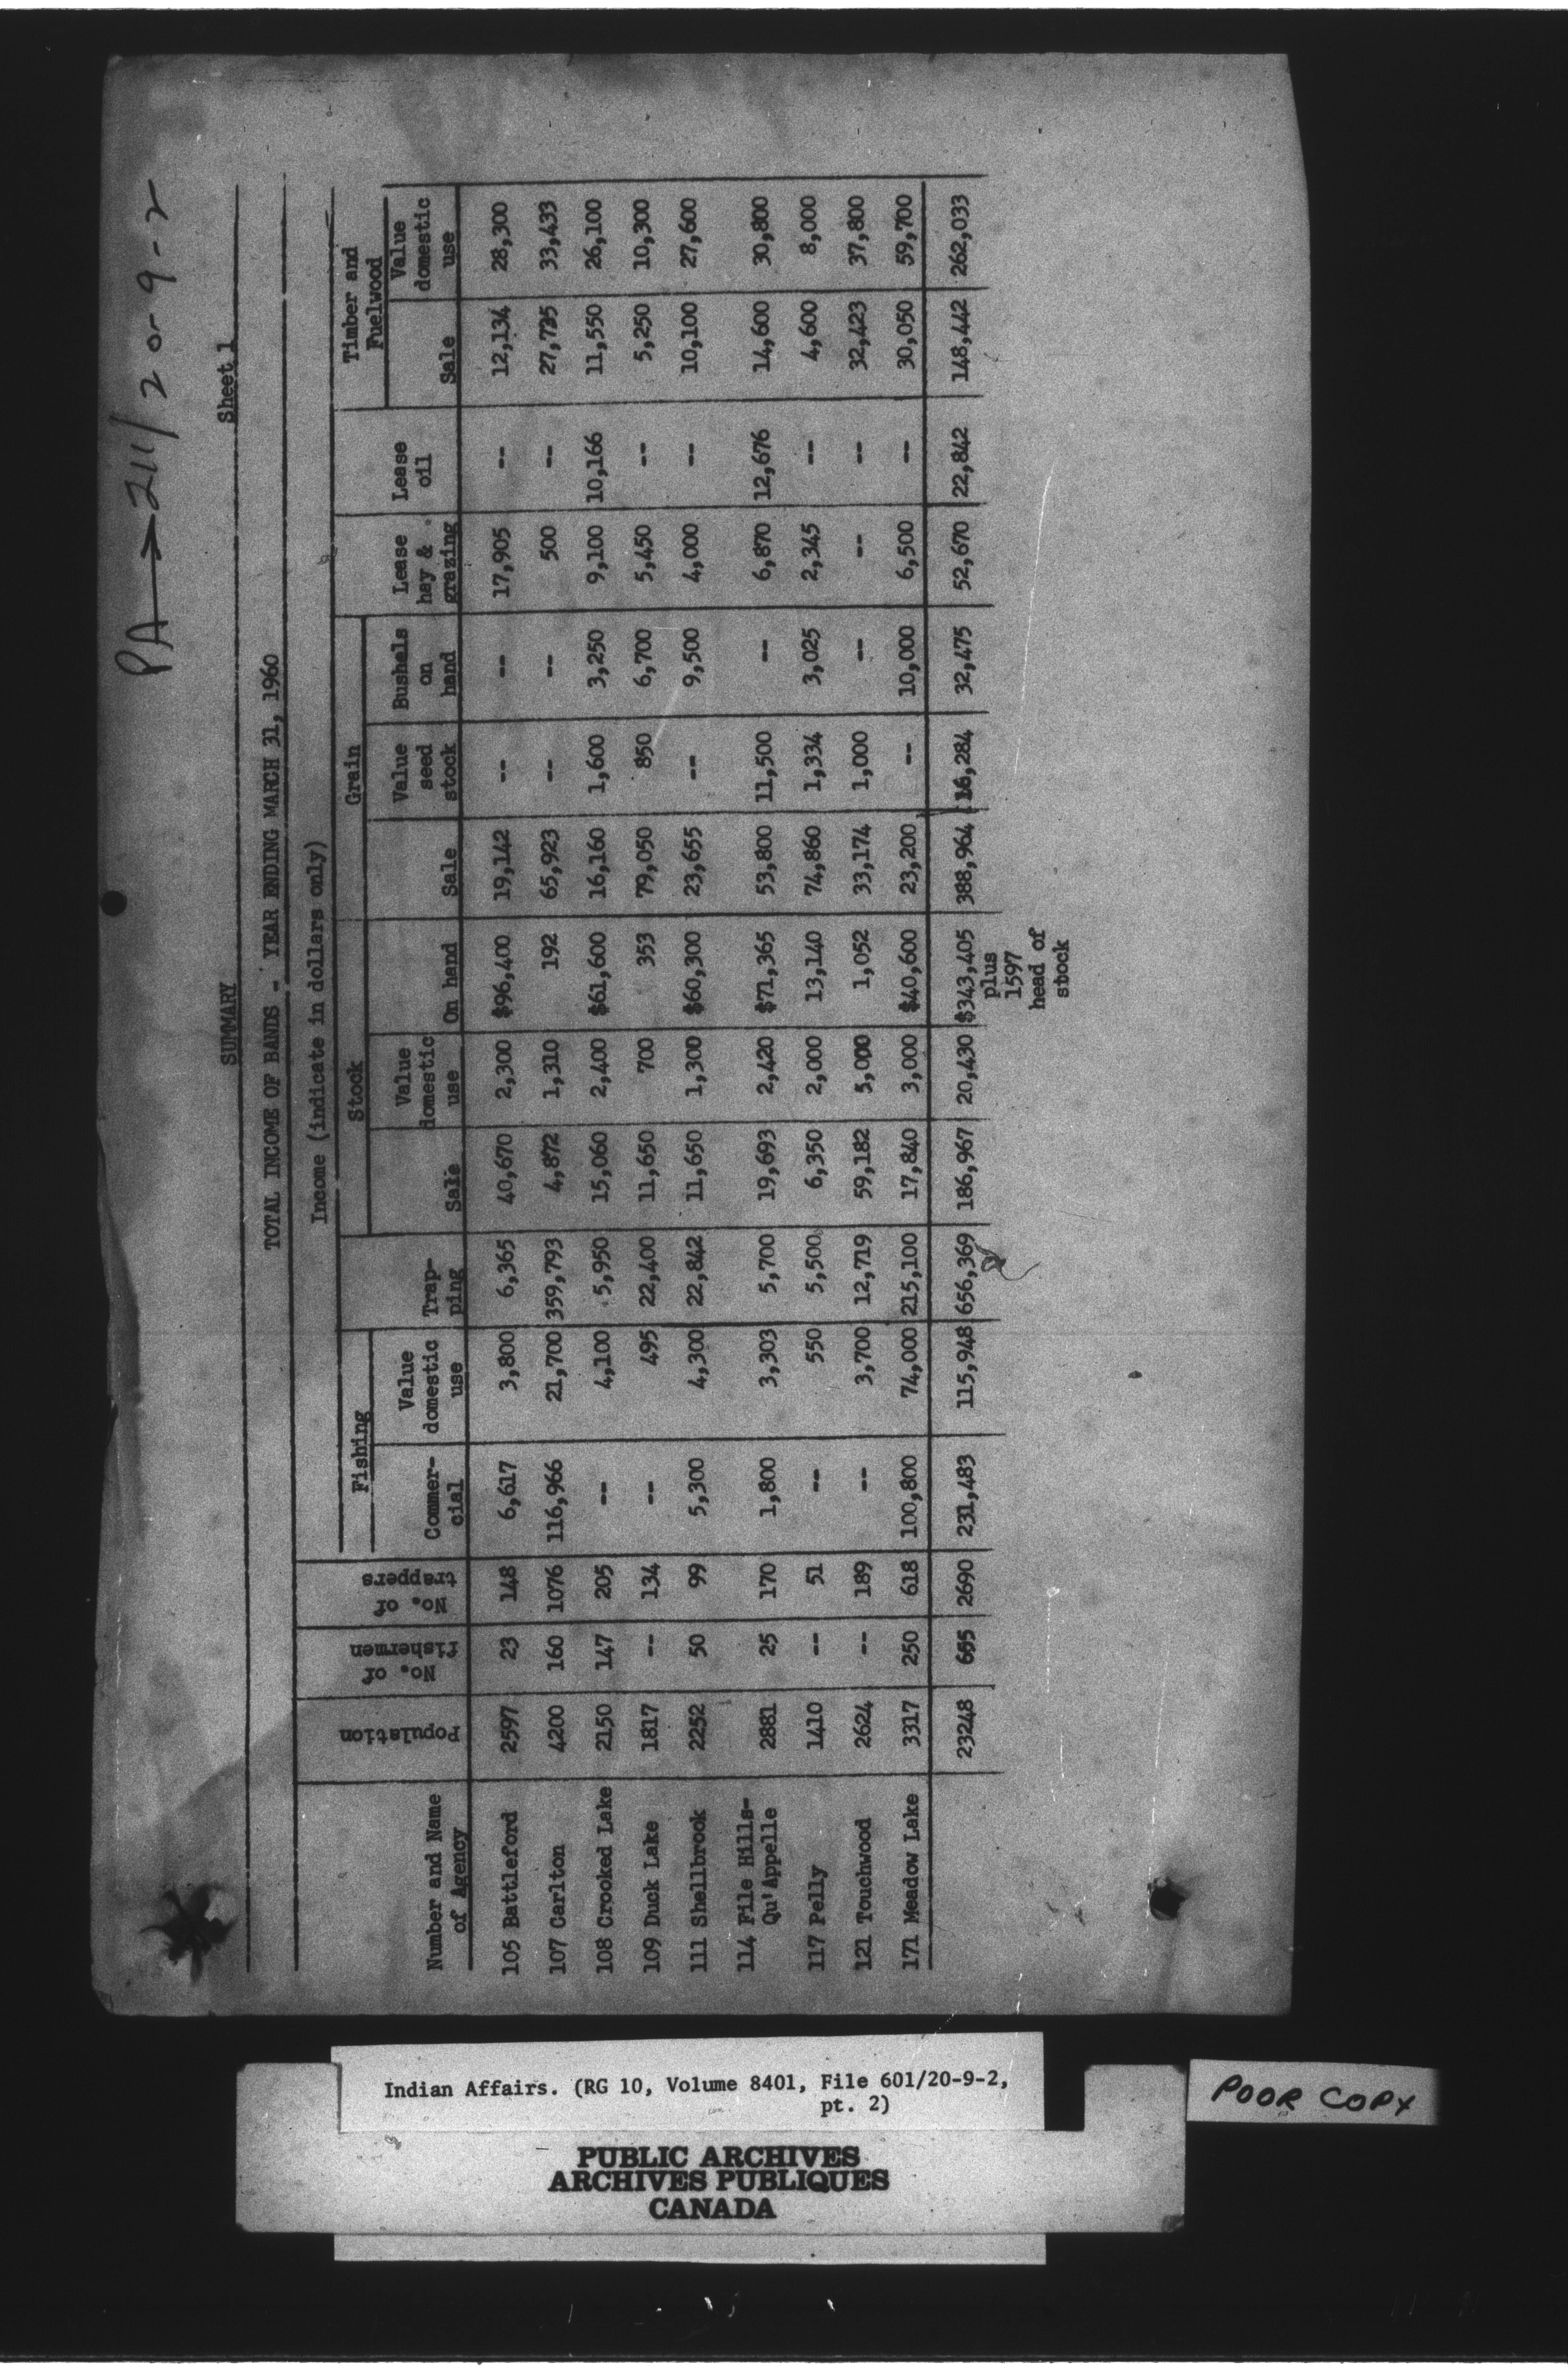 PA→211/20-9-2
SUMMARY Sheet 1
TOTAL INCOME OF BANDS - YEAR ENDING MARCH 31, 1960
Income (indicate in dollars only)
Fishing Stock Grain Timber and Fuelwood
Number and Name of Agency Population No. of fishermen No. of trappers Commer-cial Value domestic use Trap-ping Sale Value domestic use On hand Sale Value seed stock Bushels on hand Lease hay & grazing Lease oil Sale Value domestic use
105 Battleford 2597 23 148 6,617 3,800 6,365 40,670 2,300 $96,400 19,142 -- -- 17,905 -- 12,134 28,300
107 Carlton 4200 160 1076 116,966 21,700 359,793 4,872 1,310 192 65,923 -- -- 500 -- 27,735 33,433
108 Crooked Lake 2150 147 205 -- 4,100 5,950 15,060 2,400 $61,600 16,160 1,600 3,250 9,100 10,166 11,550 26,100
109 Duck Lake 1817 -- 134 -- 495 22,400 11,650 700 353 79,050 850 6,700 5,450 -- 5,250 10,300
111 Shellbrook 2252 50 99 5,300 4,300 22,842 11,650 1,300 $60,300 23,655 -- 9,500 4,000 -- 10,100 27,600
114 File Hills-
Qu'Appelle 2881 25 170 1,800 3,303 5,700 19,693 2,420 $71,365 53,800 11,500 -- 6,870 12,676 14,600 30,800
117 Pelly 1410 -- 51 -- 550 5,500 6,350 2,000 13,140 74,860 1,334 3,025 2,345 -- 4,600 8,000
121 Touchwood 2624 -- 189 -- 3,700 12,719 59,182 5,000 1,052 33,174 1,000 -- -- -- 32,423 37,800
171 Meadow Lake 3317 250 618 100,800 74,000 215,100 17,840 3,000 $40,600 23,200 -- 10,000 6,500 -- 30,050 59,700
23248 655 2690 231,483 115,948 656,369 186,967 20,430 $343,405 388,964 16,284 32,475 52,670 22,842 148,442 262,033
plus
1597
head of
stock
Indian Affairs. (RG 10, Volume 8401, File 601/20-9-2,
pt. 2)
POOR COPY
PUBLIC ARCHIVES
ARCHIVES PUBLIQUES
CANADA